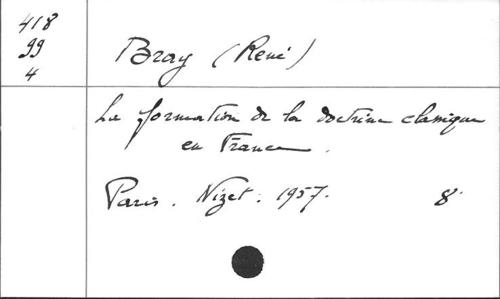 418
99
4
Bray (René)
La formation de la doctrine classique
en France.
Paris. Nizet. 1957. 8°